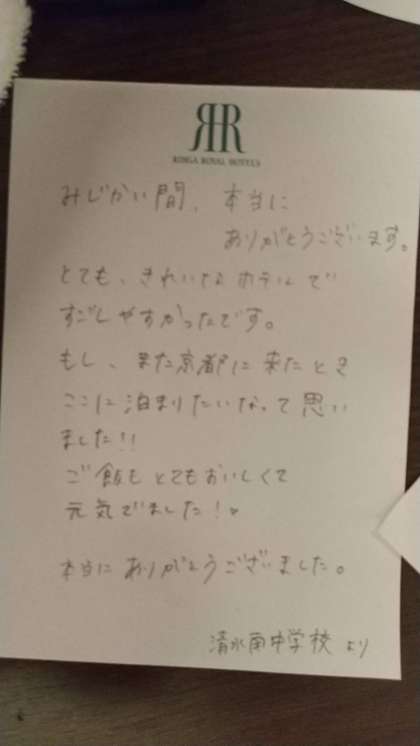 RIHGA ROYAL HOTELS
みじかい間、本当に
ありがとうございます。
とても、きれいなホテルで
すごしやすかったです。
もし、また京都に来たとき
ここに泊まりたいなって思い
ました!!
ご飯もとてもおいしくて
元気でました!♥
本当にありがとうございました。
清水南中学校 より